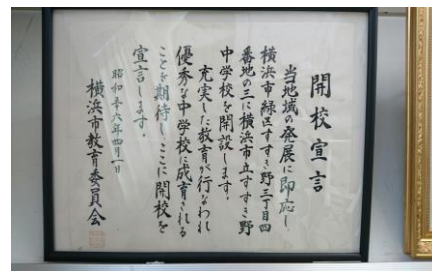 開校宣言
当地域の発展に即応し
横浜市緑区すすき野三丁目四
番地の三に横浜市立すすき野
中学校を開設します。
充実した教育が行なわれ
優秀な中学校に成育される
ことを期待し、ここに開校を
宣言します。
昭和五十六年四月一日
横浜市教育委員会